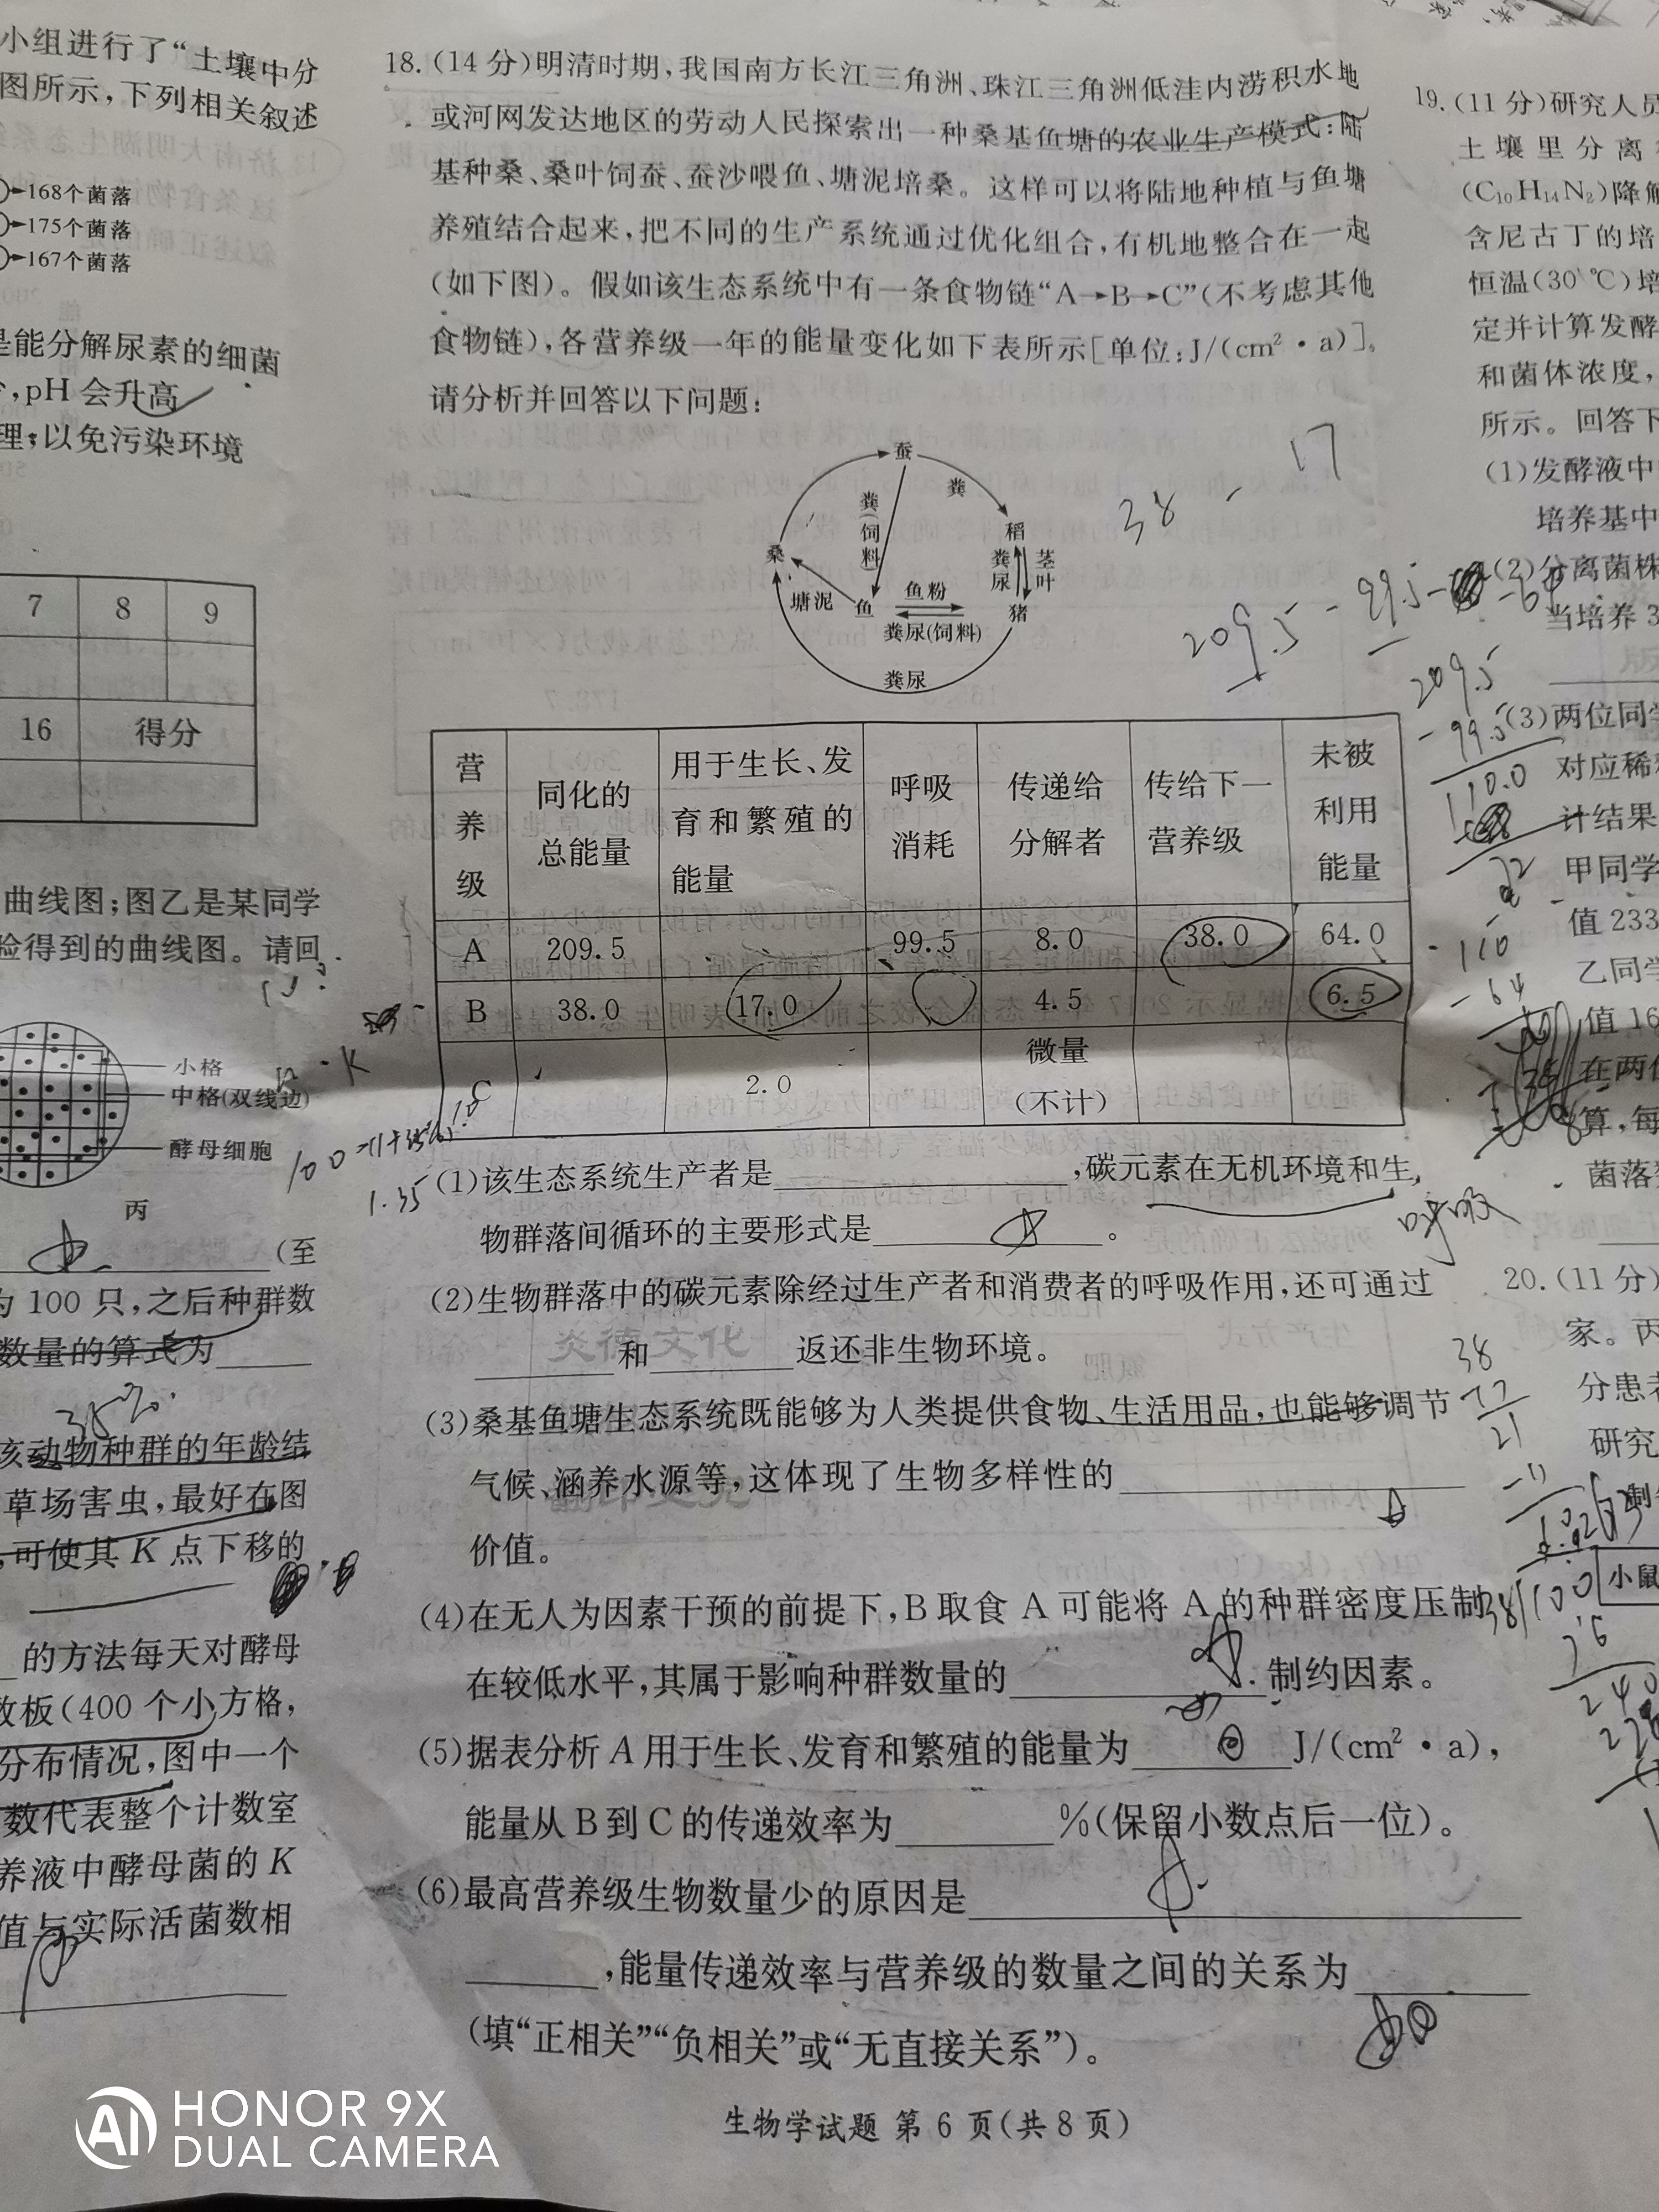 小组进行了“土壤中分
图所示,下列相关叙述
168个菌落
175个菌落
167个菌落
是能分解尿素的细菌
,pH 会升高
理,以免污染环境
7 8 9
16 得分
曲线图;图乙是某同学
验得到的曲线图。请回
小格
中格(双线边)
酵母细胞
丙
(至
为 100 只,之后种群数
数量的算式为
35%
该动物种群的年龄结
草场害虫,最好在图
,可使其 K 点下移的
的方法每天对酵母
数板(400 个小方格,
分布情况,图中一个
数代表整个计数室
养液中酵母菌的 K
值与实际活菌数相
18.(14 分)明清时期,我国南方长江三角洲、珠江三角洲低洼内涝积水地
或河网发达地区的劳动人民探索出一种桑基鱼塘的农业生产模式:陆
基种桑、桑叶饲蚕、蚕沙喂鱼、塘泥培桑。这样可以将陆地种植与鱼塘
养殖结合起来,把不同的生产系统通过优化组合,有机地整合在一起
(如下图)。假如该生态系统中有一条食物链“A→B→C”(不考虑其他
食物链),各营养级一年的能量变化如下表所示[单位:J/(cm²·a)]。
请分析并回答以下问题:
蚕
粪
粪(饲料
稻
桑
粪尿
茎叶
塘泥
鱼
鱼粉
猪
粪尿(饲料)
粪尿
38 - 17
209.5 - 99.5
209.5
- 99.5
110.0
110
- 64
营养级 同化的总能量 用于生长、发育和繁殖的能量 呼吸消耗 传递给分解者 传给下一营养级 未被利用能量
A 209.5 99.5 8.0 38.0 64.0
B 38.0 17.0 4.5 6.5
C 2.0 微量(不计)
1.35
(1)该生态系统生产者是 ,碳元素在无机环境和生
物群落间循环的主要形式是 。
呼吸
(2)生物群落中的碳元素除经过生产者和消费者的呼吸作用,还可通过
和 返还非生物环境。
炎德文化
(3)桑基鱼塘生态系统既能够为人类提供食物、生活用品,也能够调节
气候、涵养水源等,这体现了生物多样性的
价值。
(4)在无人为因素干预的前提下,B 取食 A 可能将 A 的种群密度压制
在较低水平,其属于影响种群数量的 制约因素。
(5)据表分析 A 用于生长、发育和繁殖的能量为 J/(cm²·a),
能量从 B 到 C 的传递效率为 %(保留小数点后一位)。
(6)最高营养级生物数量少的原因是
,能量传递效率与营养级的数量之间的关系为
(填“正相关”“负相关”或“无直接关系”)。
38
21
生物学试题 第 6 页(共 8 页)
19.(11 分)研究人员
土壤里分离
(C₁₀H₁₄N₂)降解
含尼古丁的培
恒温(30 ℃)培
定并计算发酵
和菌体浓度,
所示。回答下
(1)发酵液中
培养基中
(2)分离菌株
当培养 3
(3)两位同学
对应稀
计结果
甲同学
值 233
乙同学
值 16
在两位
算,每
菌落
20.(11 分)
家。丙
分患者
研究
制
小鼠
AI
HONOR 9X
DUAL CAMERA